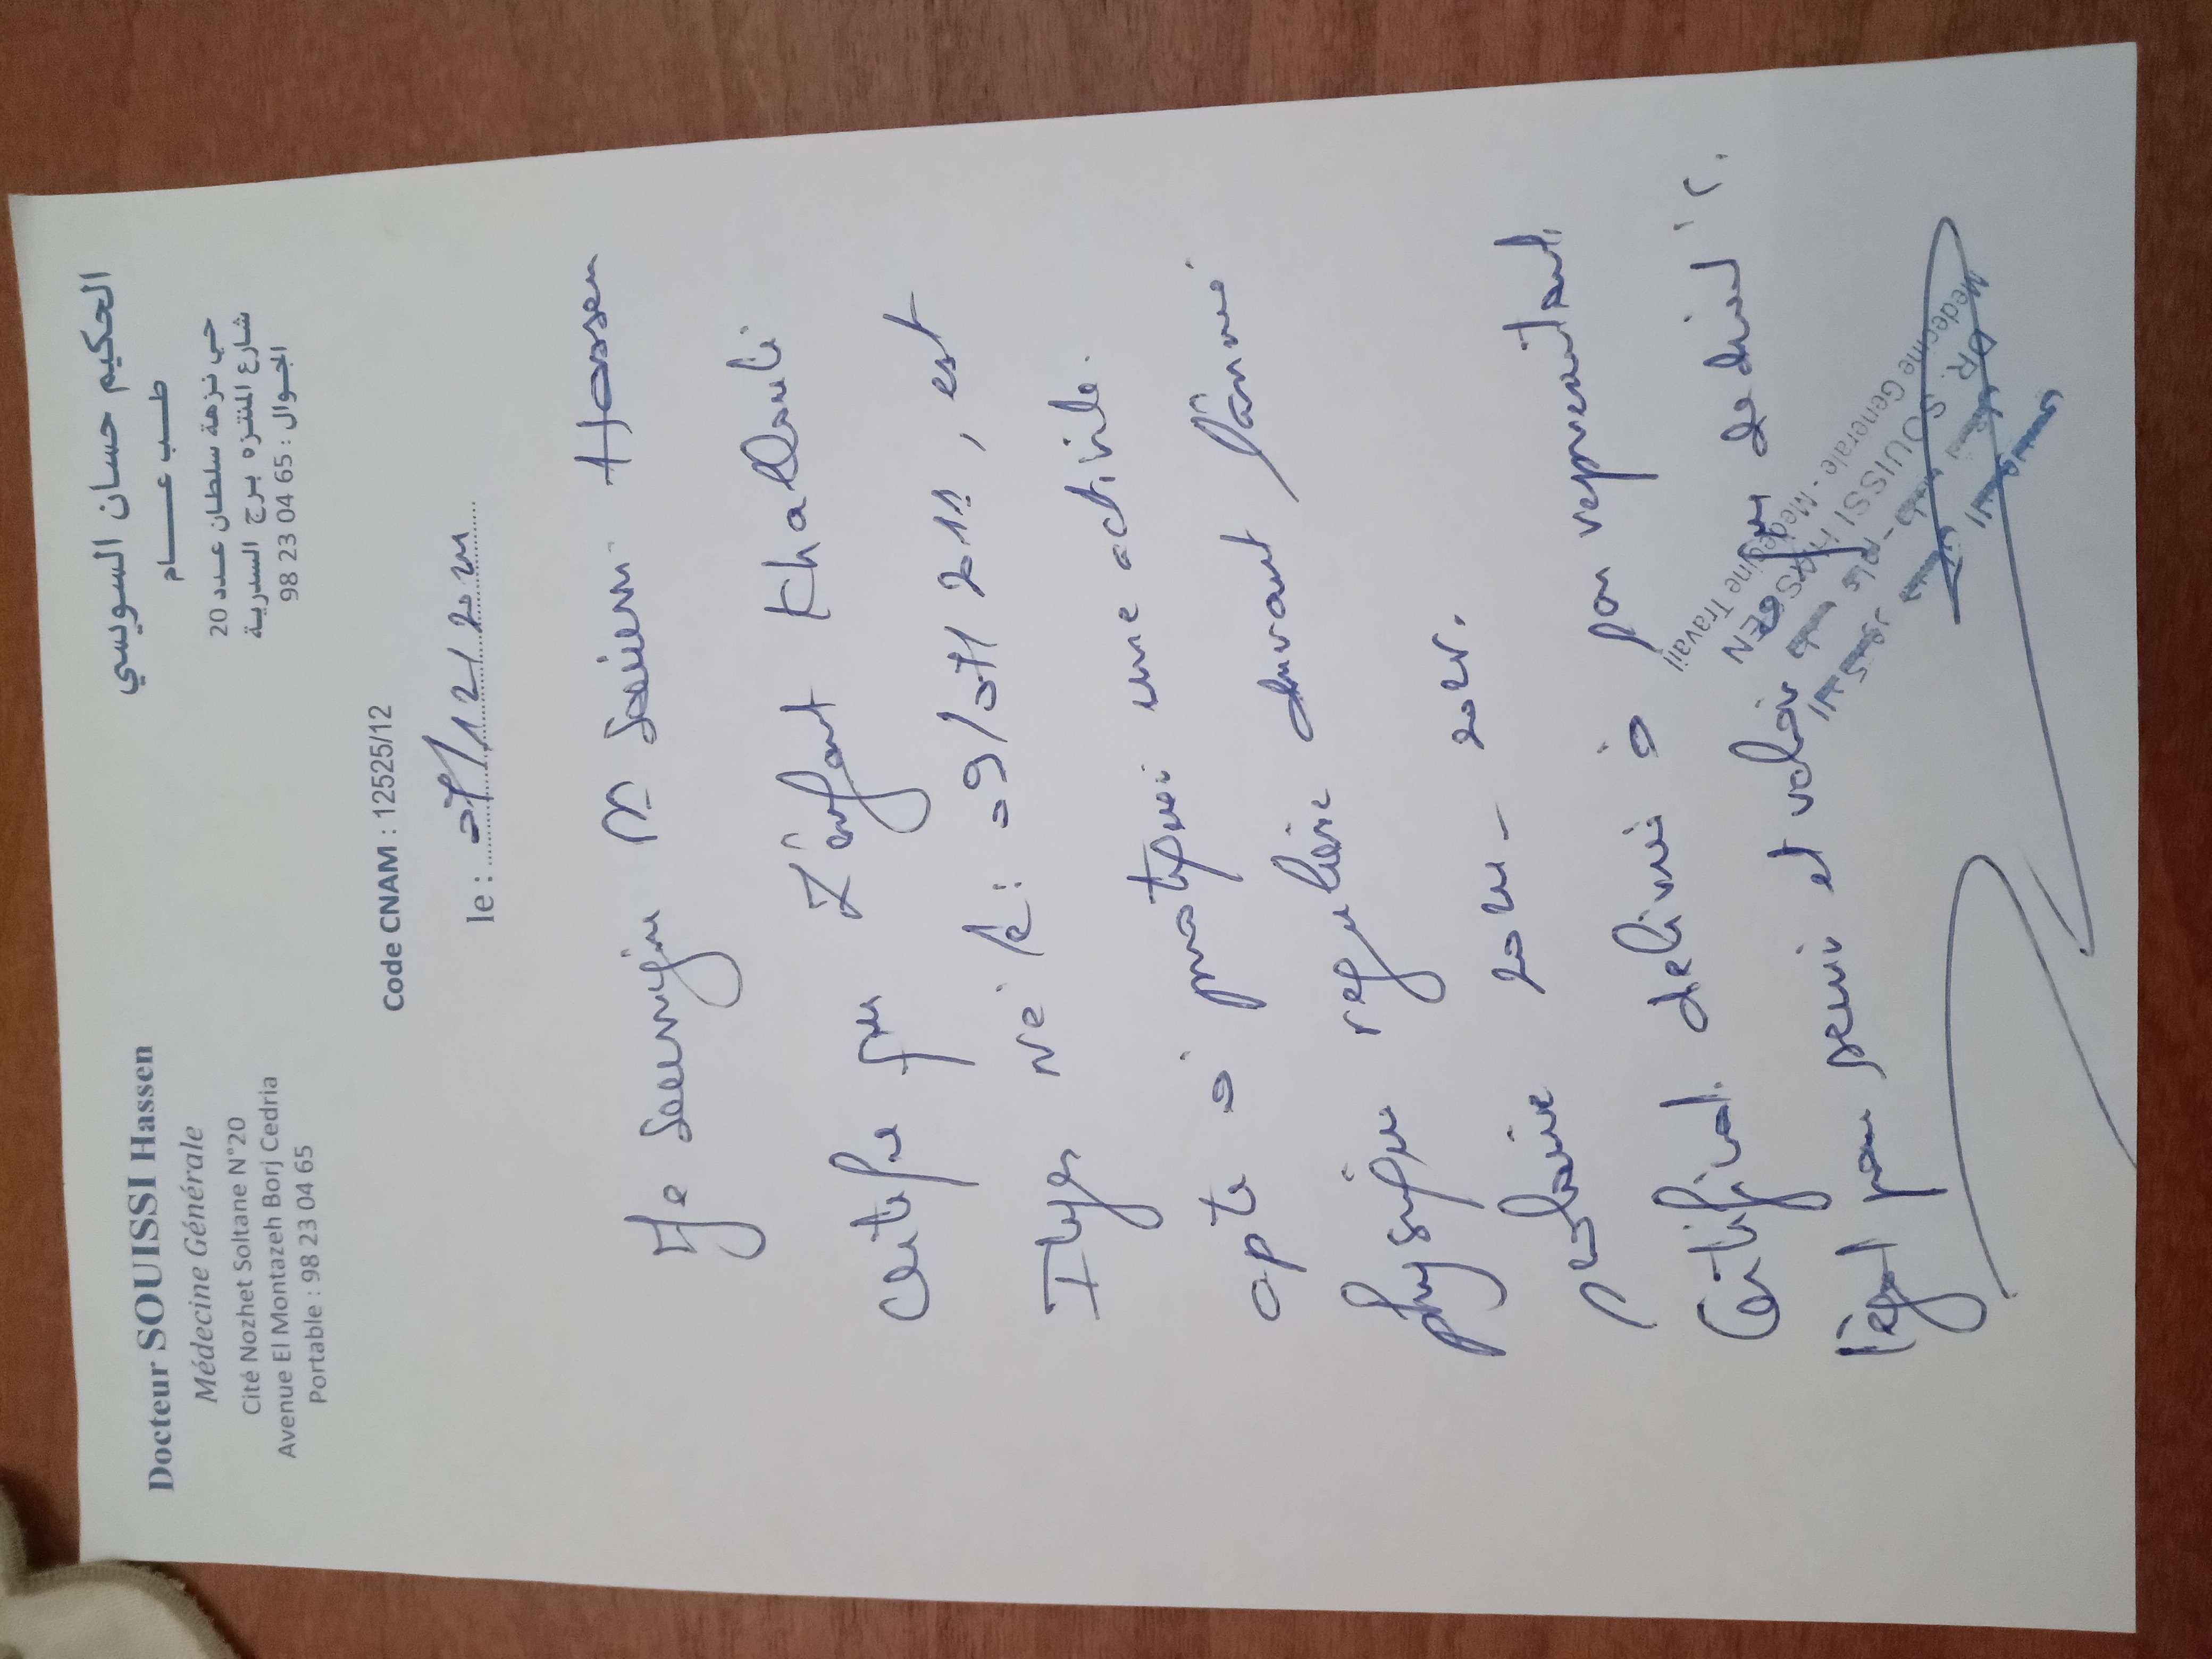 Docteur SOUISSI Hassen
Médecine Générale
Cité Nozhet Soltane N°20
Avenue El Montazeh Borj Cedria
Portable : 98 23 04 65
الحكيم حسان السويسي
طــب عـــــام
حي نزهة سلطان عدد 20
شارع المنتزه برج السدرية
الجوال : 98 23 04 65
Code CNAM : 12525/12
le : 07/12/
Je soussigné Dr Souissi Hassen
Certifie que L'enfant Khallouli
Ilyes né le : 09/07/2011, est
apte à pratiquer une activité
physique régulière durant l'année
scolaire
Certificat délivré à
légal pour servir et valoir ce que de droit.
DR. SOUISSI HASSEN
Medecine Generale - Medecine Travail